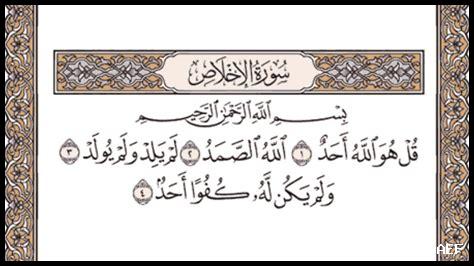 سُورَةُ الإِخْلَاصِ
بِسْمِ اللَّهِ الرَّحْمَٰنِ الرَّحِيمِ
قُلْ هُوَ ٱللَّهُ أَحَدٌ ١ ٱللَّهُ ٱلصَّمَدُ ٢ لَمْ يَلِدْ وَلَمْ يُولَدْ ٣
وَلَمْ يَكُن لَّهُۥ كُفُوًا أَحَدٌۢ ٤
AEF